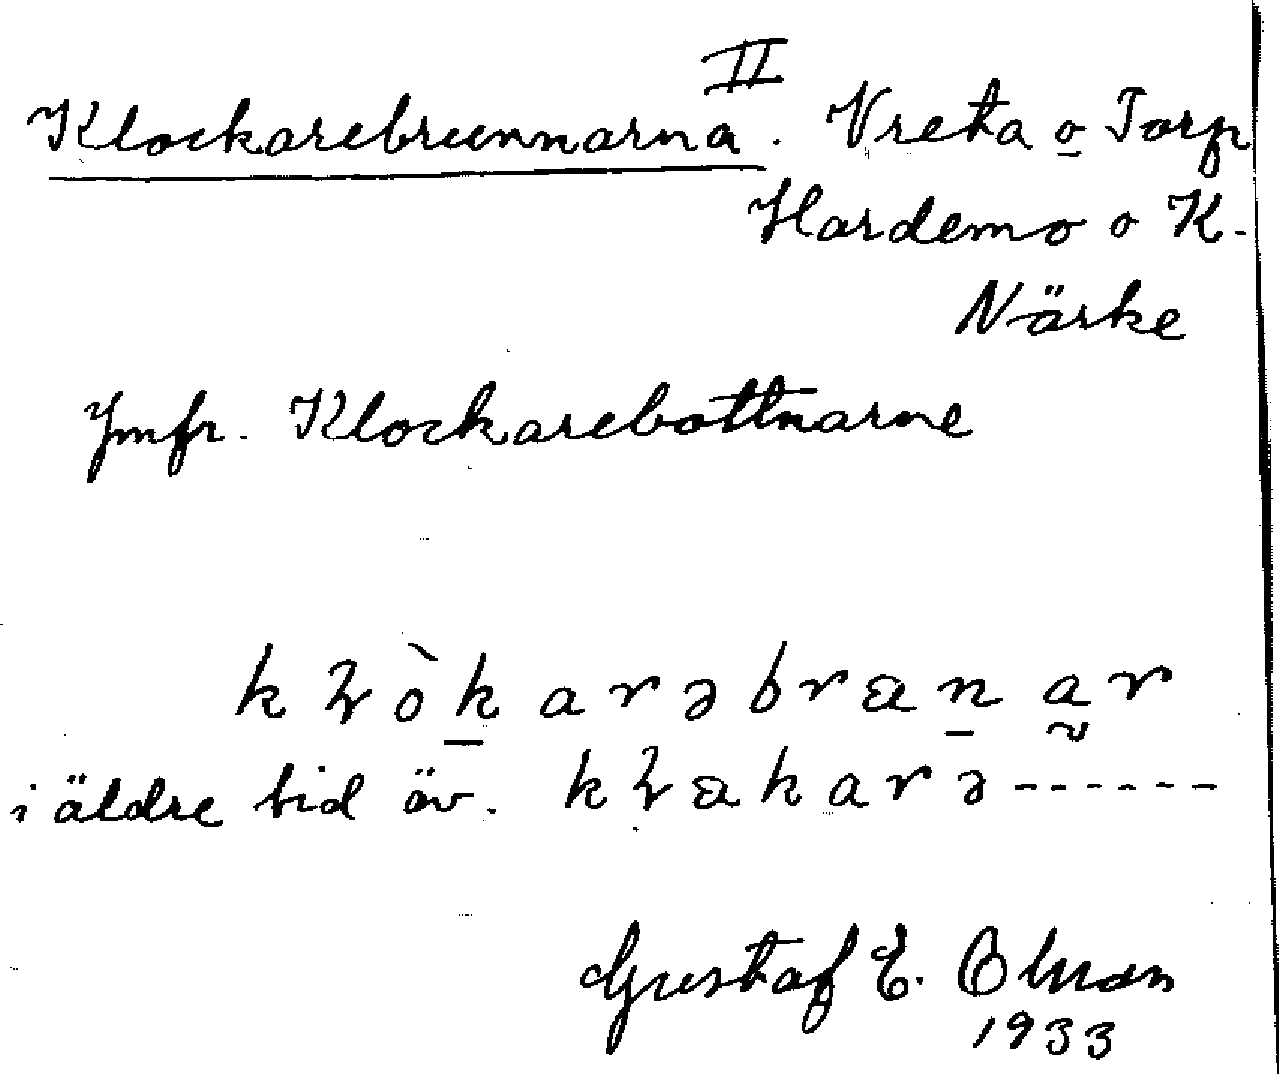 II
Klockarebrunnarna. Vreta o Torp
Hardemo o K.
Närke
Jmfr. Klockarebottnarne
i äldre tid äv.
Gustaf E. Ohman
1933